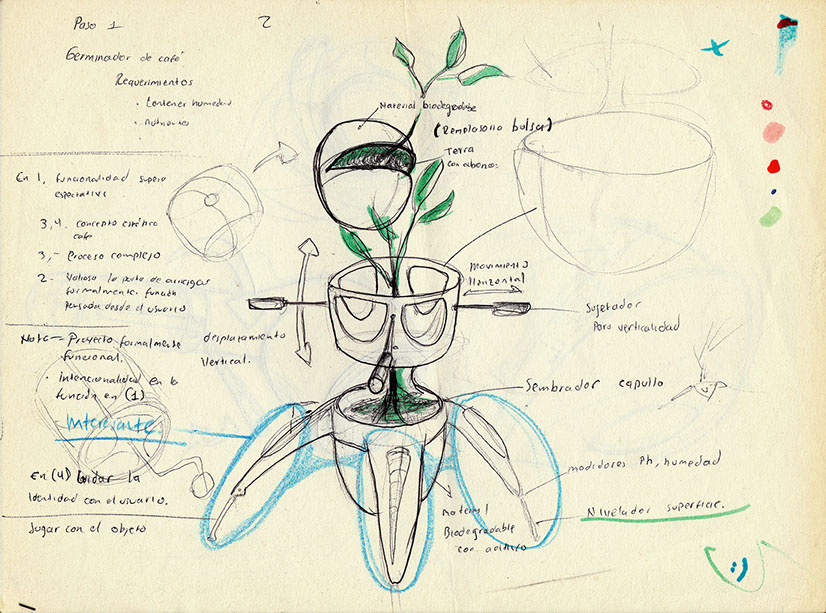 Paso 1
2
Germinador de café
Requerimientos
· Contener humedad
· Nutrientes
Material biodegradable
(Remplasaria bolsas)
Terra
con abonos:
En 1, funcionalidad supera
espectativa
3,4. concepto estético
café
3,- Proceso complejo
2- Valiosa la parte de arraigar
formalmente. función
Pensada desde el usuario
Movimiento
Horizontal
Sujetador
Para verticalidad
Nota - Proyecto formalmente
funcional.
desplazamiento
Vertical.
· intencionalidad en la
función en (1)
Interesante.
Sembrador capullo
En (4) cuidar la
Identidad con el usuario.
Jugar con el objeto
medidores Ph, humedad
Nivelador superficie.
Material
Biodegradable
con aditivo